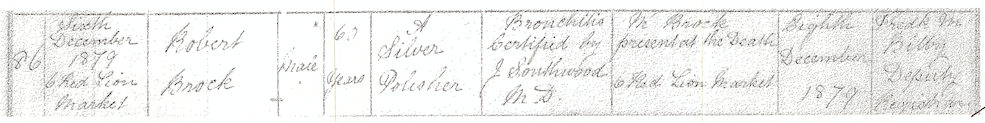 86
Sixth
December
1879
6 Red Lion
Market
Robert
Brock
Male
63
Years
A
Silver
Polisher
Bronchitis
Certified by
J Southwood
M D.
M Brock
present at the Death
6 Red Lion Market
Eighth
December
1879
Fredk Wm
Bilby
Deputy
Registrar